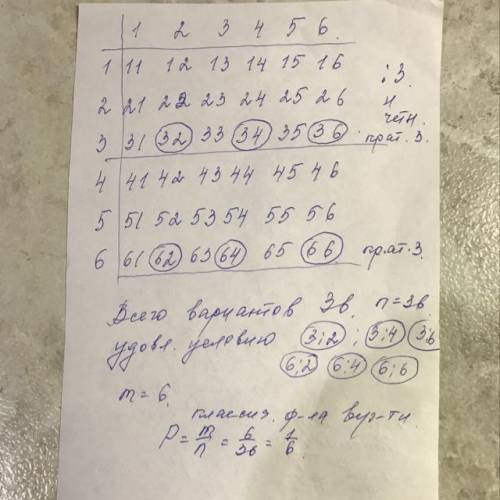 1 2 3 4 5 6.
1 11 12 13 14 15 16
2 21 22 23 24 25 26
3 31 32 33 34 35 36 крат. 3.
4 41 42 43 44 45 46
5 51 52 53 54 55 56
6 61 62 63 64 65 66 крат. 3.
: 3.
и
четн.
Всего вариантов 36. n=36
удовл. условию 3;2 ; 3;4 3;6
6;2 6;4 6;6
m=6.
классич. ф-ла вер-ти.
P = m/n = 6/36 = 1/6.